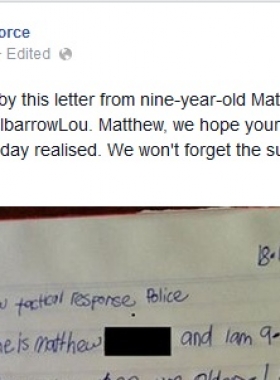 orce
· Edited
by this letter from nine-year-old Mat
lbarrowLou. Matthew, we hope your
day realised. We won't forget the su
18-1
tactical response Police
e is matthew and I am 9-